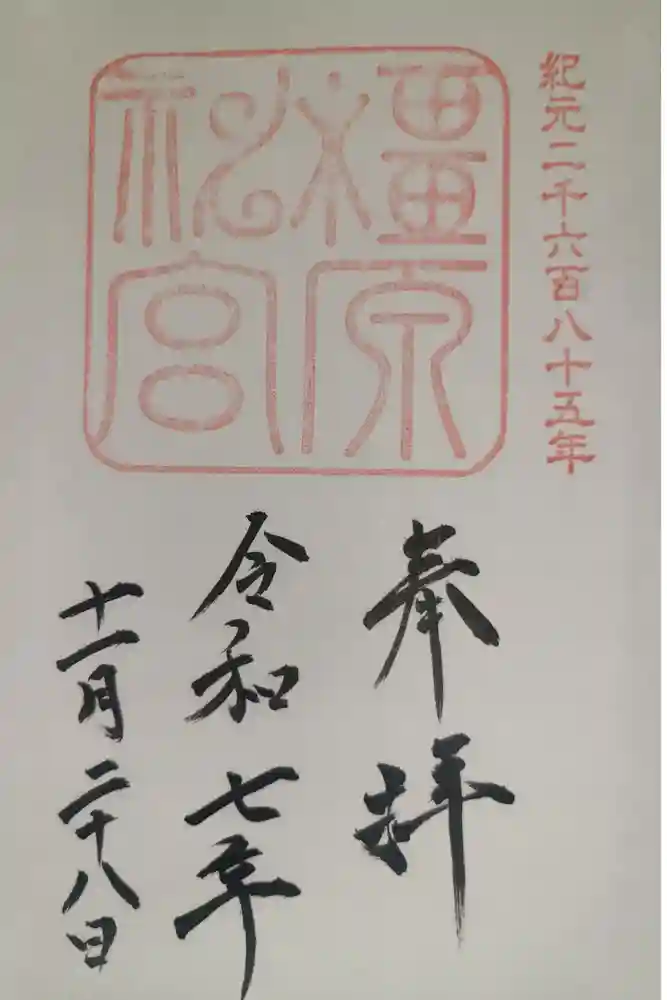 紀元二千六百八十五年
橿原
神宮
奉拝
令和七年
十一月二十八日